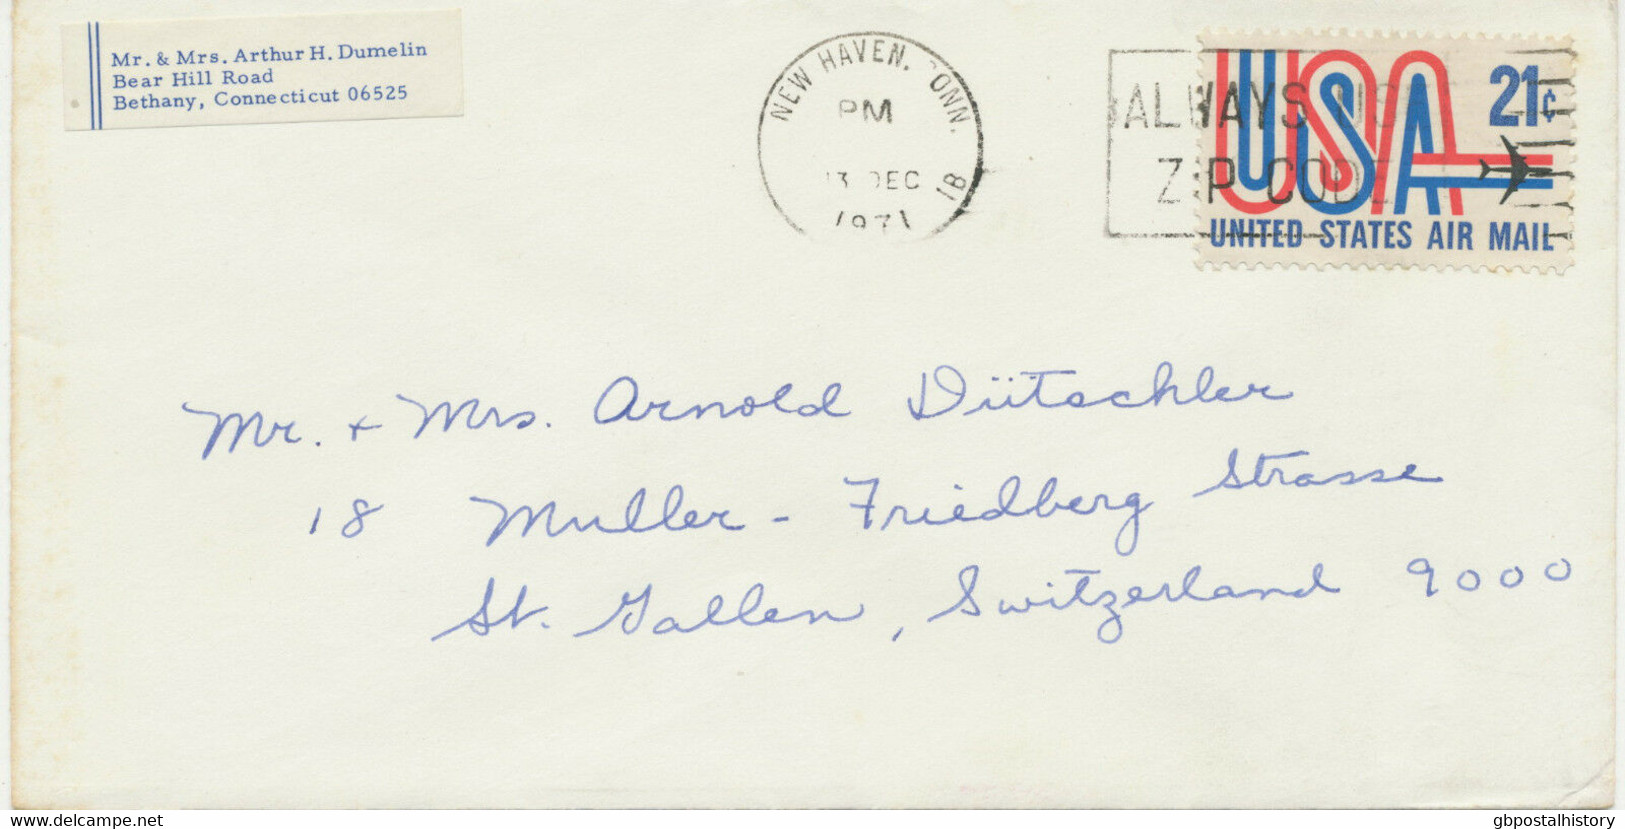 Mr. & Mrs. Arthur H. Dumelin
Bear Hill Road
Bethany, Connecticut 06525
NEW HAVEN, CONN.
PM
13 DEC
1971
1B
ALWAYS USE
ZIP CODE
USA 21¢
UNITED STATES AIR MAIL
Mr. + Mrs. Arnold Dütschler
18 Muller - Friedberg Strasse
St. Gallen, Switzerland 9000
www.delcampe.net
gbpostalhistory